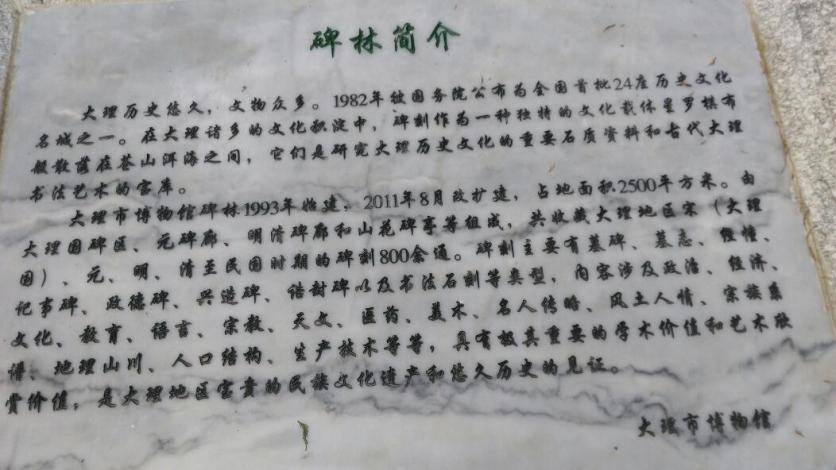 碑林简介
大理历史悠久，文物众多。1982年被国务院公布为全国首批24座历史文化
名城之一。在大理诸多的文化积淀中，碑刻作为一种独特的文化载体星罗棋布
般散落在苍山洱海之间，它们是研究大理历史文化的重要石质资料和古代大理
书法艺术的宝库。
大理市博物馆碑林1993年始建，2011年8月改扩建，占地面积2500平方米。由
大理国碑区、元碑廊、明清碑廊和山花碑亭等组成，共收藏大理地区宋（大理
国）、元、明、清至民国时期的碑刻800余通。碑刻主要有墓碑、墓志、经幢、
记事碑、政德碑、兴造碑、诰封碑以及书法石刻等类型，内容涉及政治、经济、
文化、教育、语言、宗教、天文、医药、美术、名人传略、风土人情、宗族系
谱、地理山川、人口结构、生产技术等等，具有极其重要的学术价值和艺术欣
赏价值，是大理地区宝贵的民族文化遗产和悠久历史的见证。
大理市博物馆